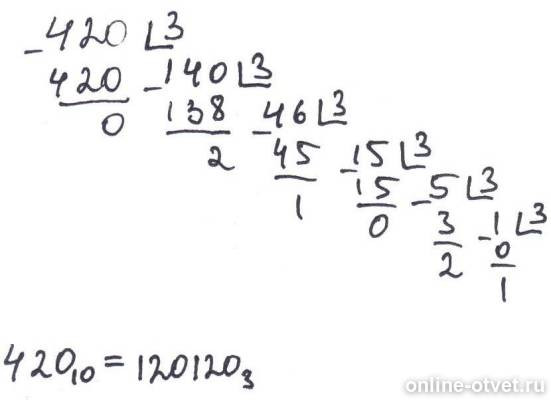 - 420 | 3
420 - 140 | 3
0 138 - 46 | 3
2 45 - 15 | 3
1 15 - 5 | 3
0 3 - 1 | 3
2 0
1
420₁₀ = 120120₃
online-otvet.ru